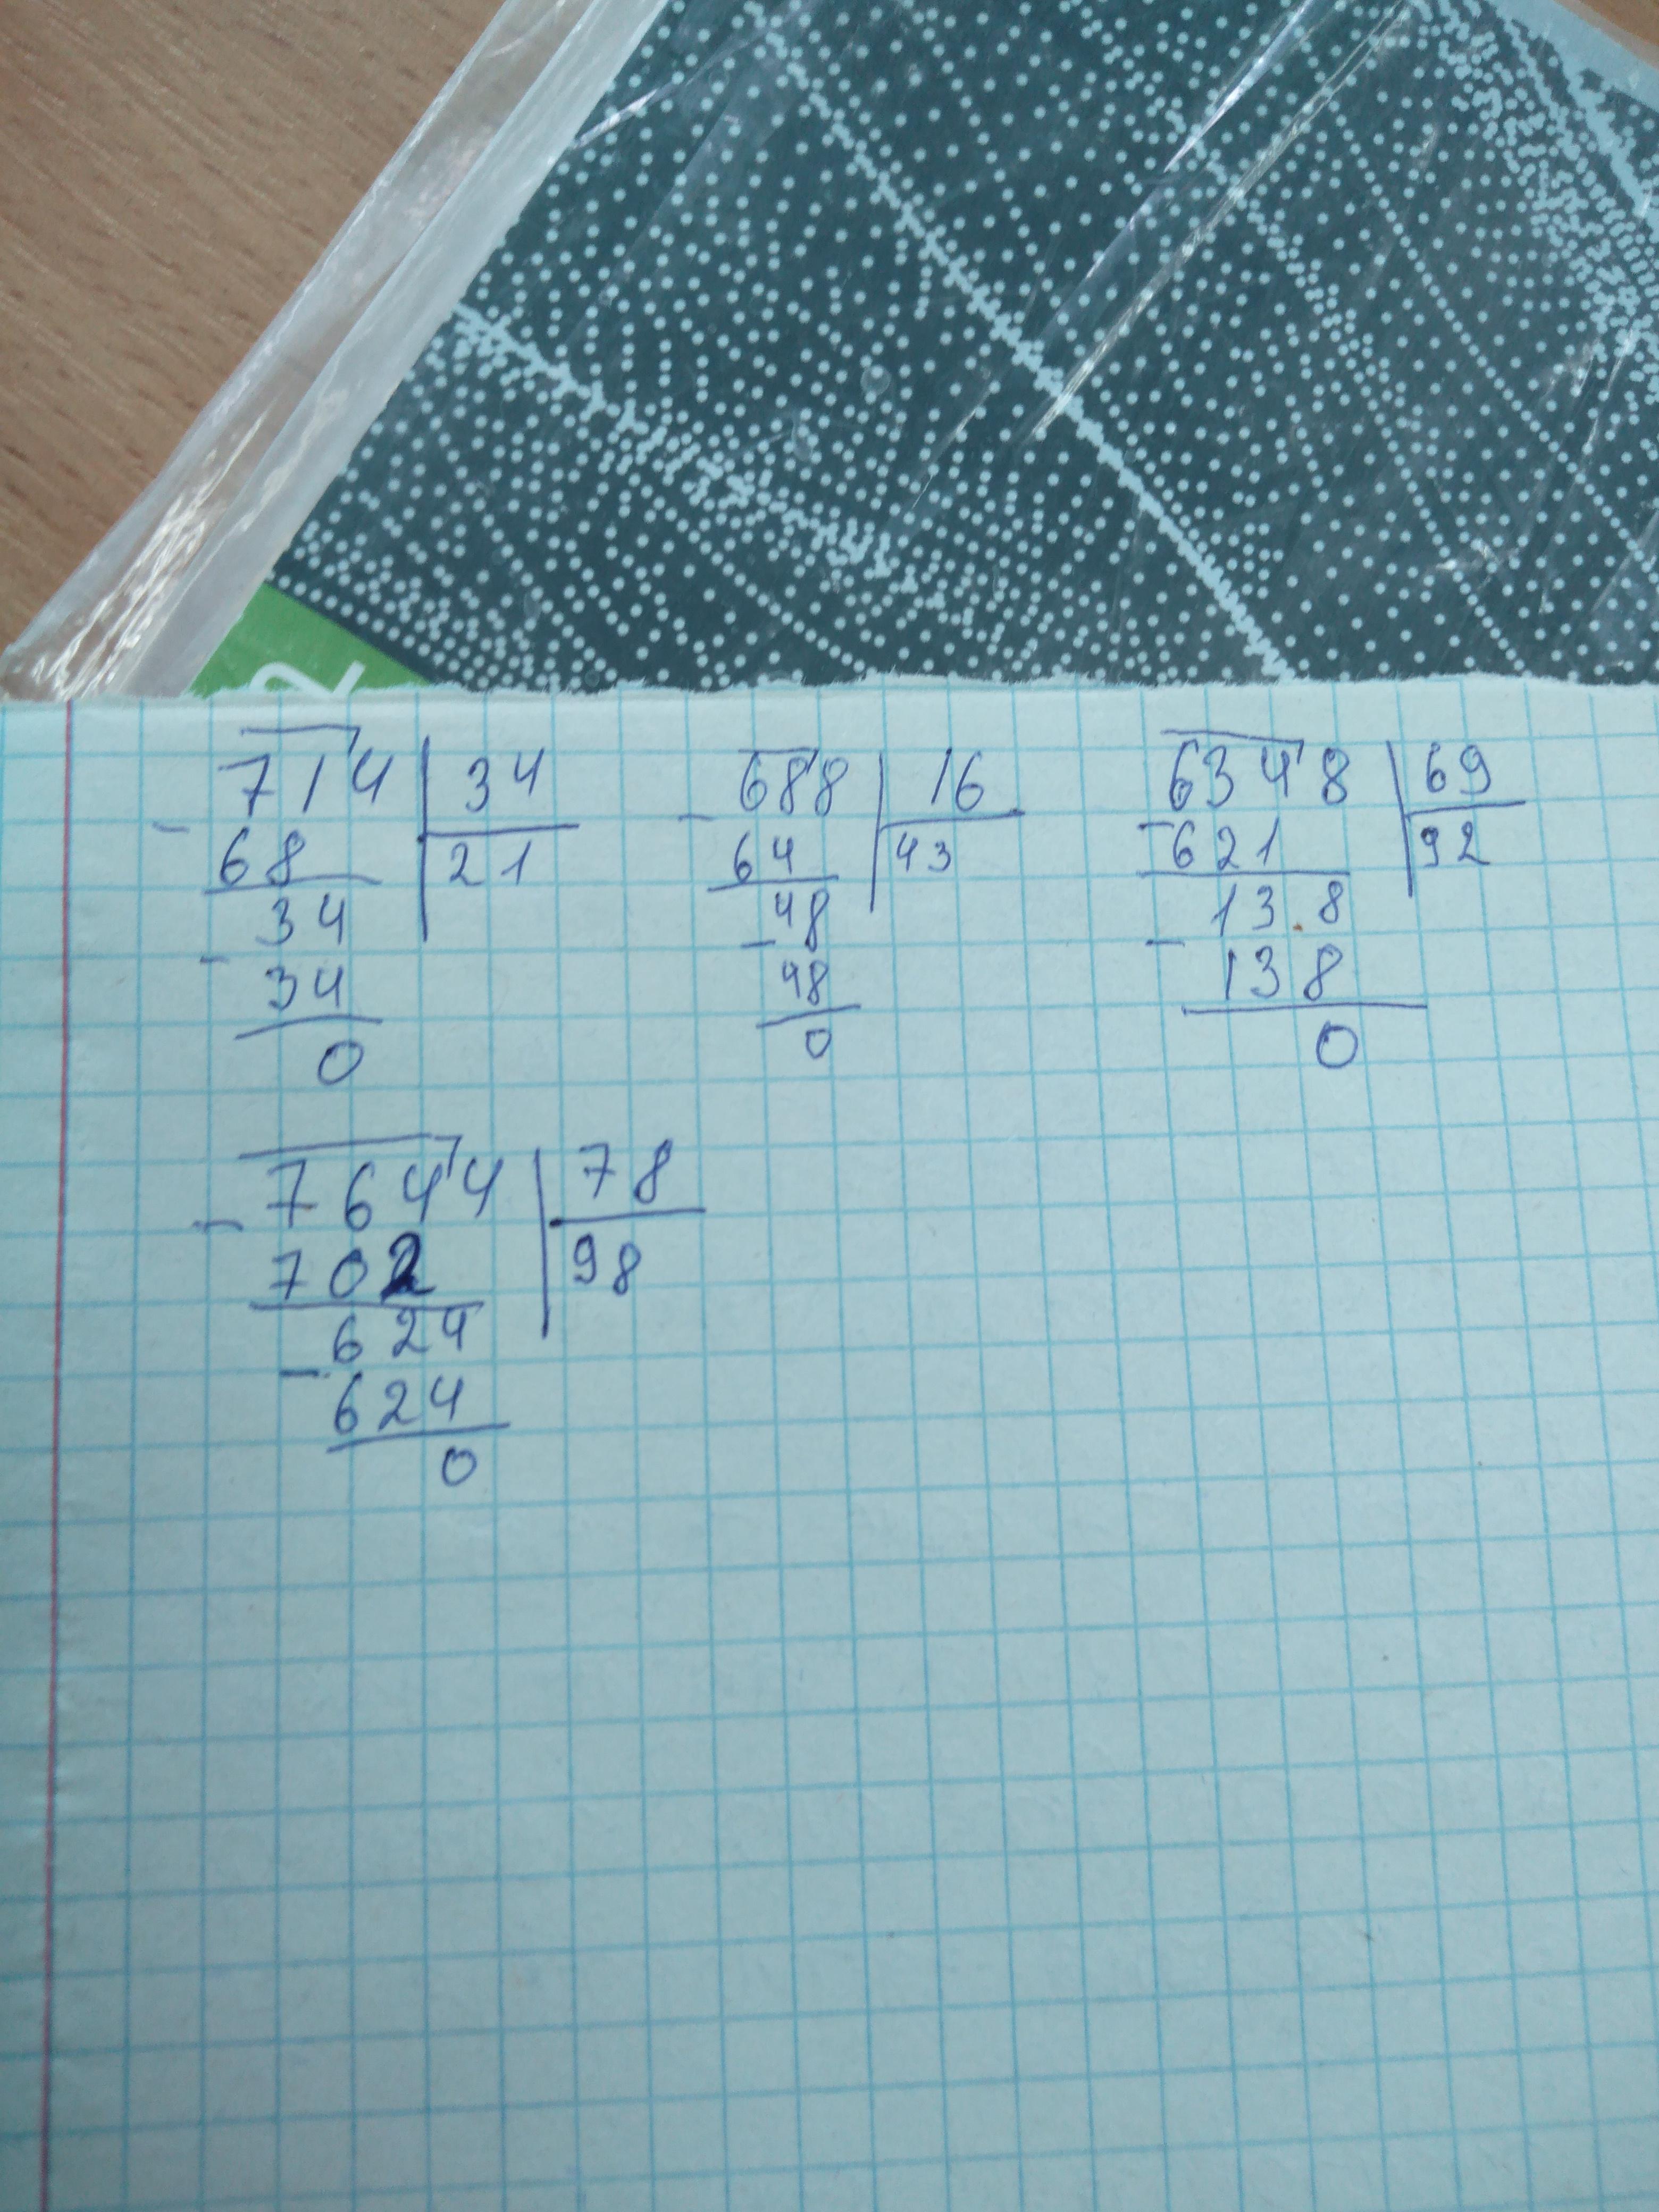 2
714 34
- 68 21
34
- 34
0
688 16
- 64 43
48
- 48
0
6348 69
- 621 92
138
- 138
0
7644 78
- 702 98
624
- 624
0